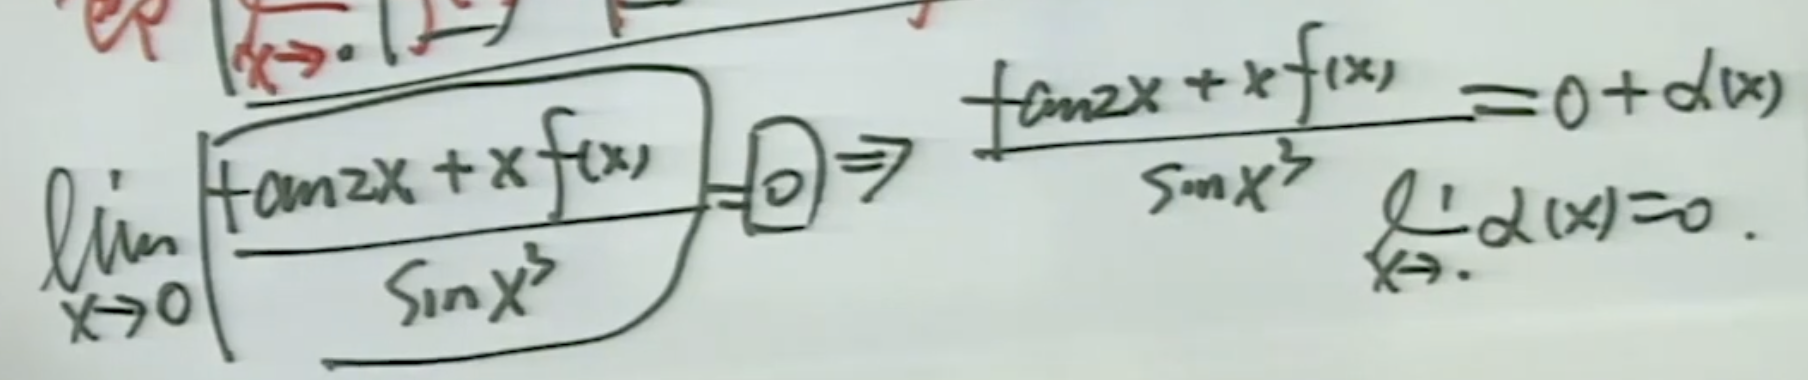 x→0
lim x→0 (tan2x + x f(x)) / sinx³ = 0 ⇒ (tan2x + x f(x)) / sinx³ = 0 + α(x)
lim x→0 α(x) = 0.